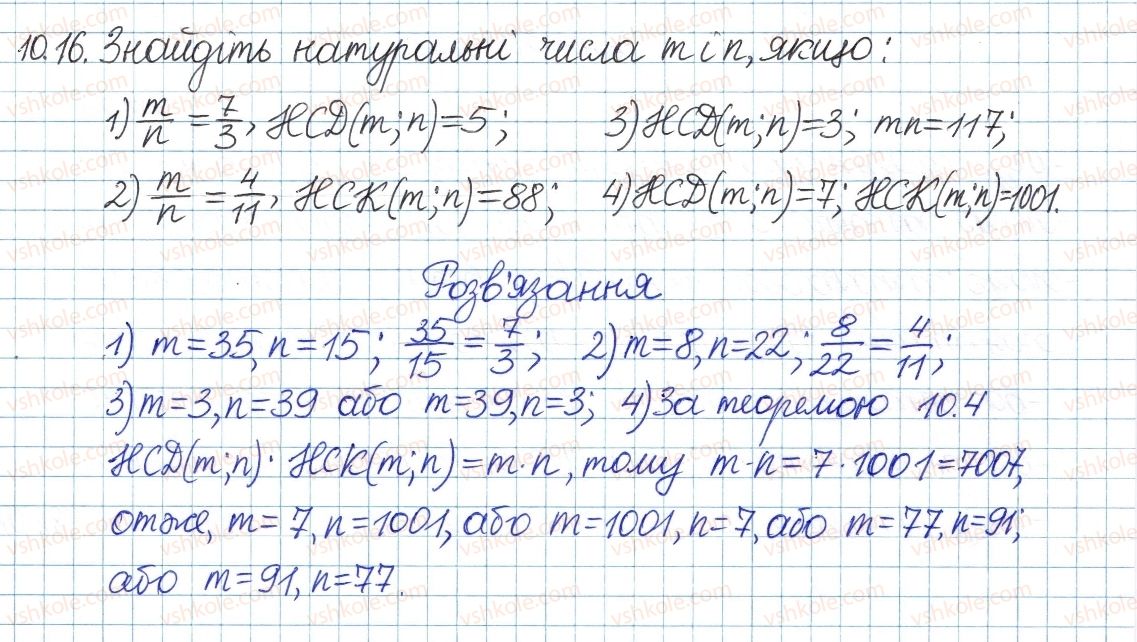 10.16. Знайдіть натуральні числа m і n, якщо:
1) m/n = 7/3, НСД(m; n) = 5; 3) НСД(m; n) = 3; mn = 117;
2) m/n = 4/11, НСК(m; n) = 88; 4) НСД(m; n) = 7; НСК(m; n) = 1001.
Розв'язання
1) m = 35, n = 15; 35/15 = 7/3; 2) m = 8, n = 22; 8/22 = 4/11;
3) m = 3, n = 39 або m = 39, n = 3; 4) За теоремою 10.4
НСД(m; n) · НСК(m; n) = m · n, тому m · n = 7 · 1001 = 7007,
отже, m = 7, n = 1001, або m = 1001, n = 7, або m = 77, n = 91;
або m = 91, n = 77.